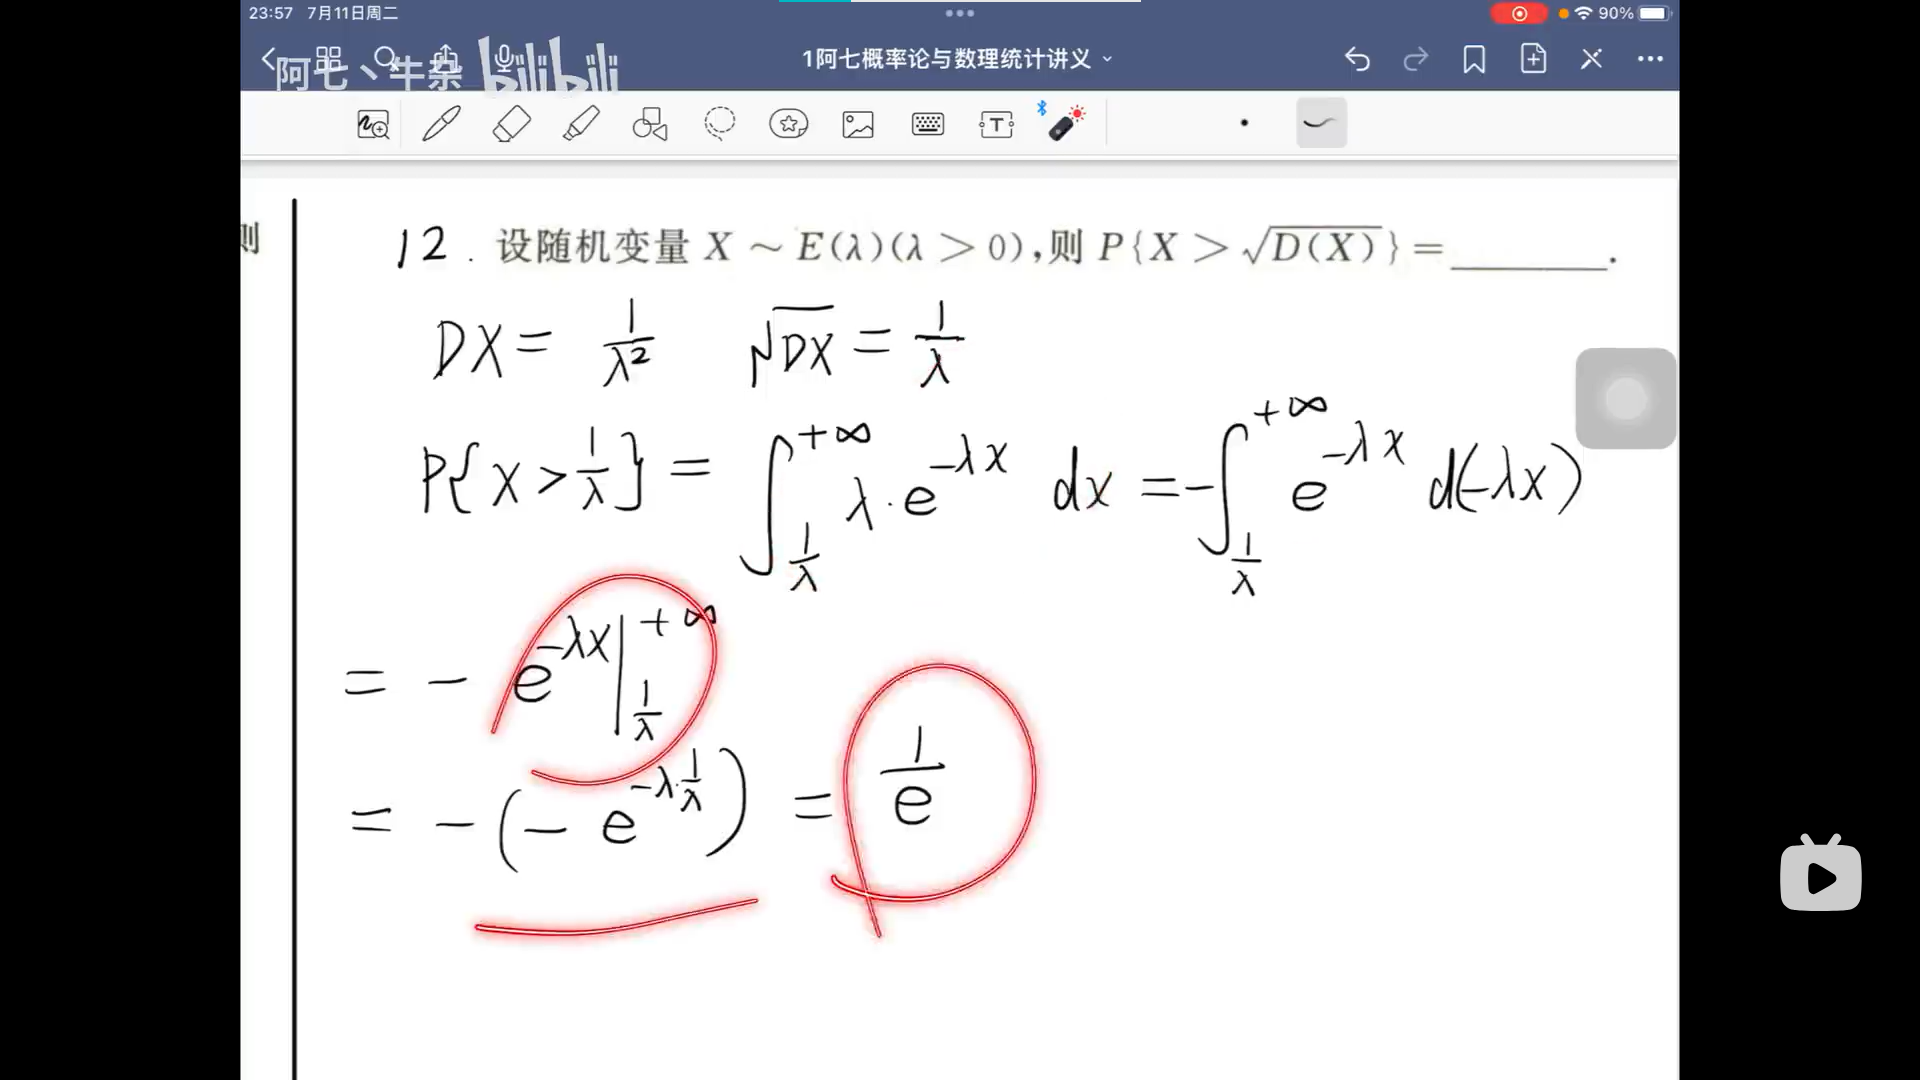 23:57 7月11日周二
90%
阿七丶牛杂 bilibili
1阿七概率论与数理统计讲义
则
12. 设随机变量 X ~ E(λ)(λ > 0),则 P{X > √D(X)} = ______.
DX = 1/λ² √DX = 1/λ
P{X > 1/λ} = ∫_{1/λ}^{+∞} λ·e^{-λx} dx = -∫_{1/λ}^{+∞} e^{-λx} d(-λx)
= - e^{-λx}|_{1/λ}^{+∞}
= -(- e^{-λ·1/λ}) = 1/e